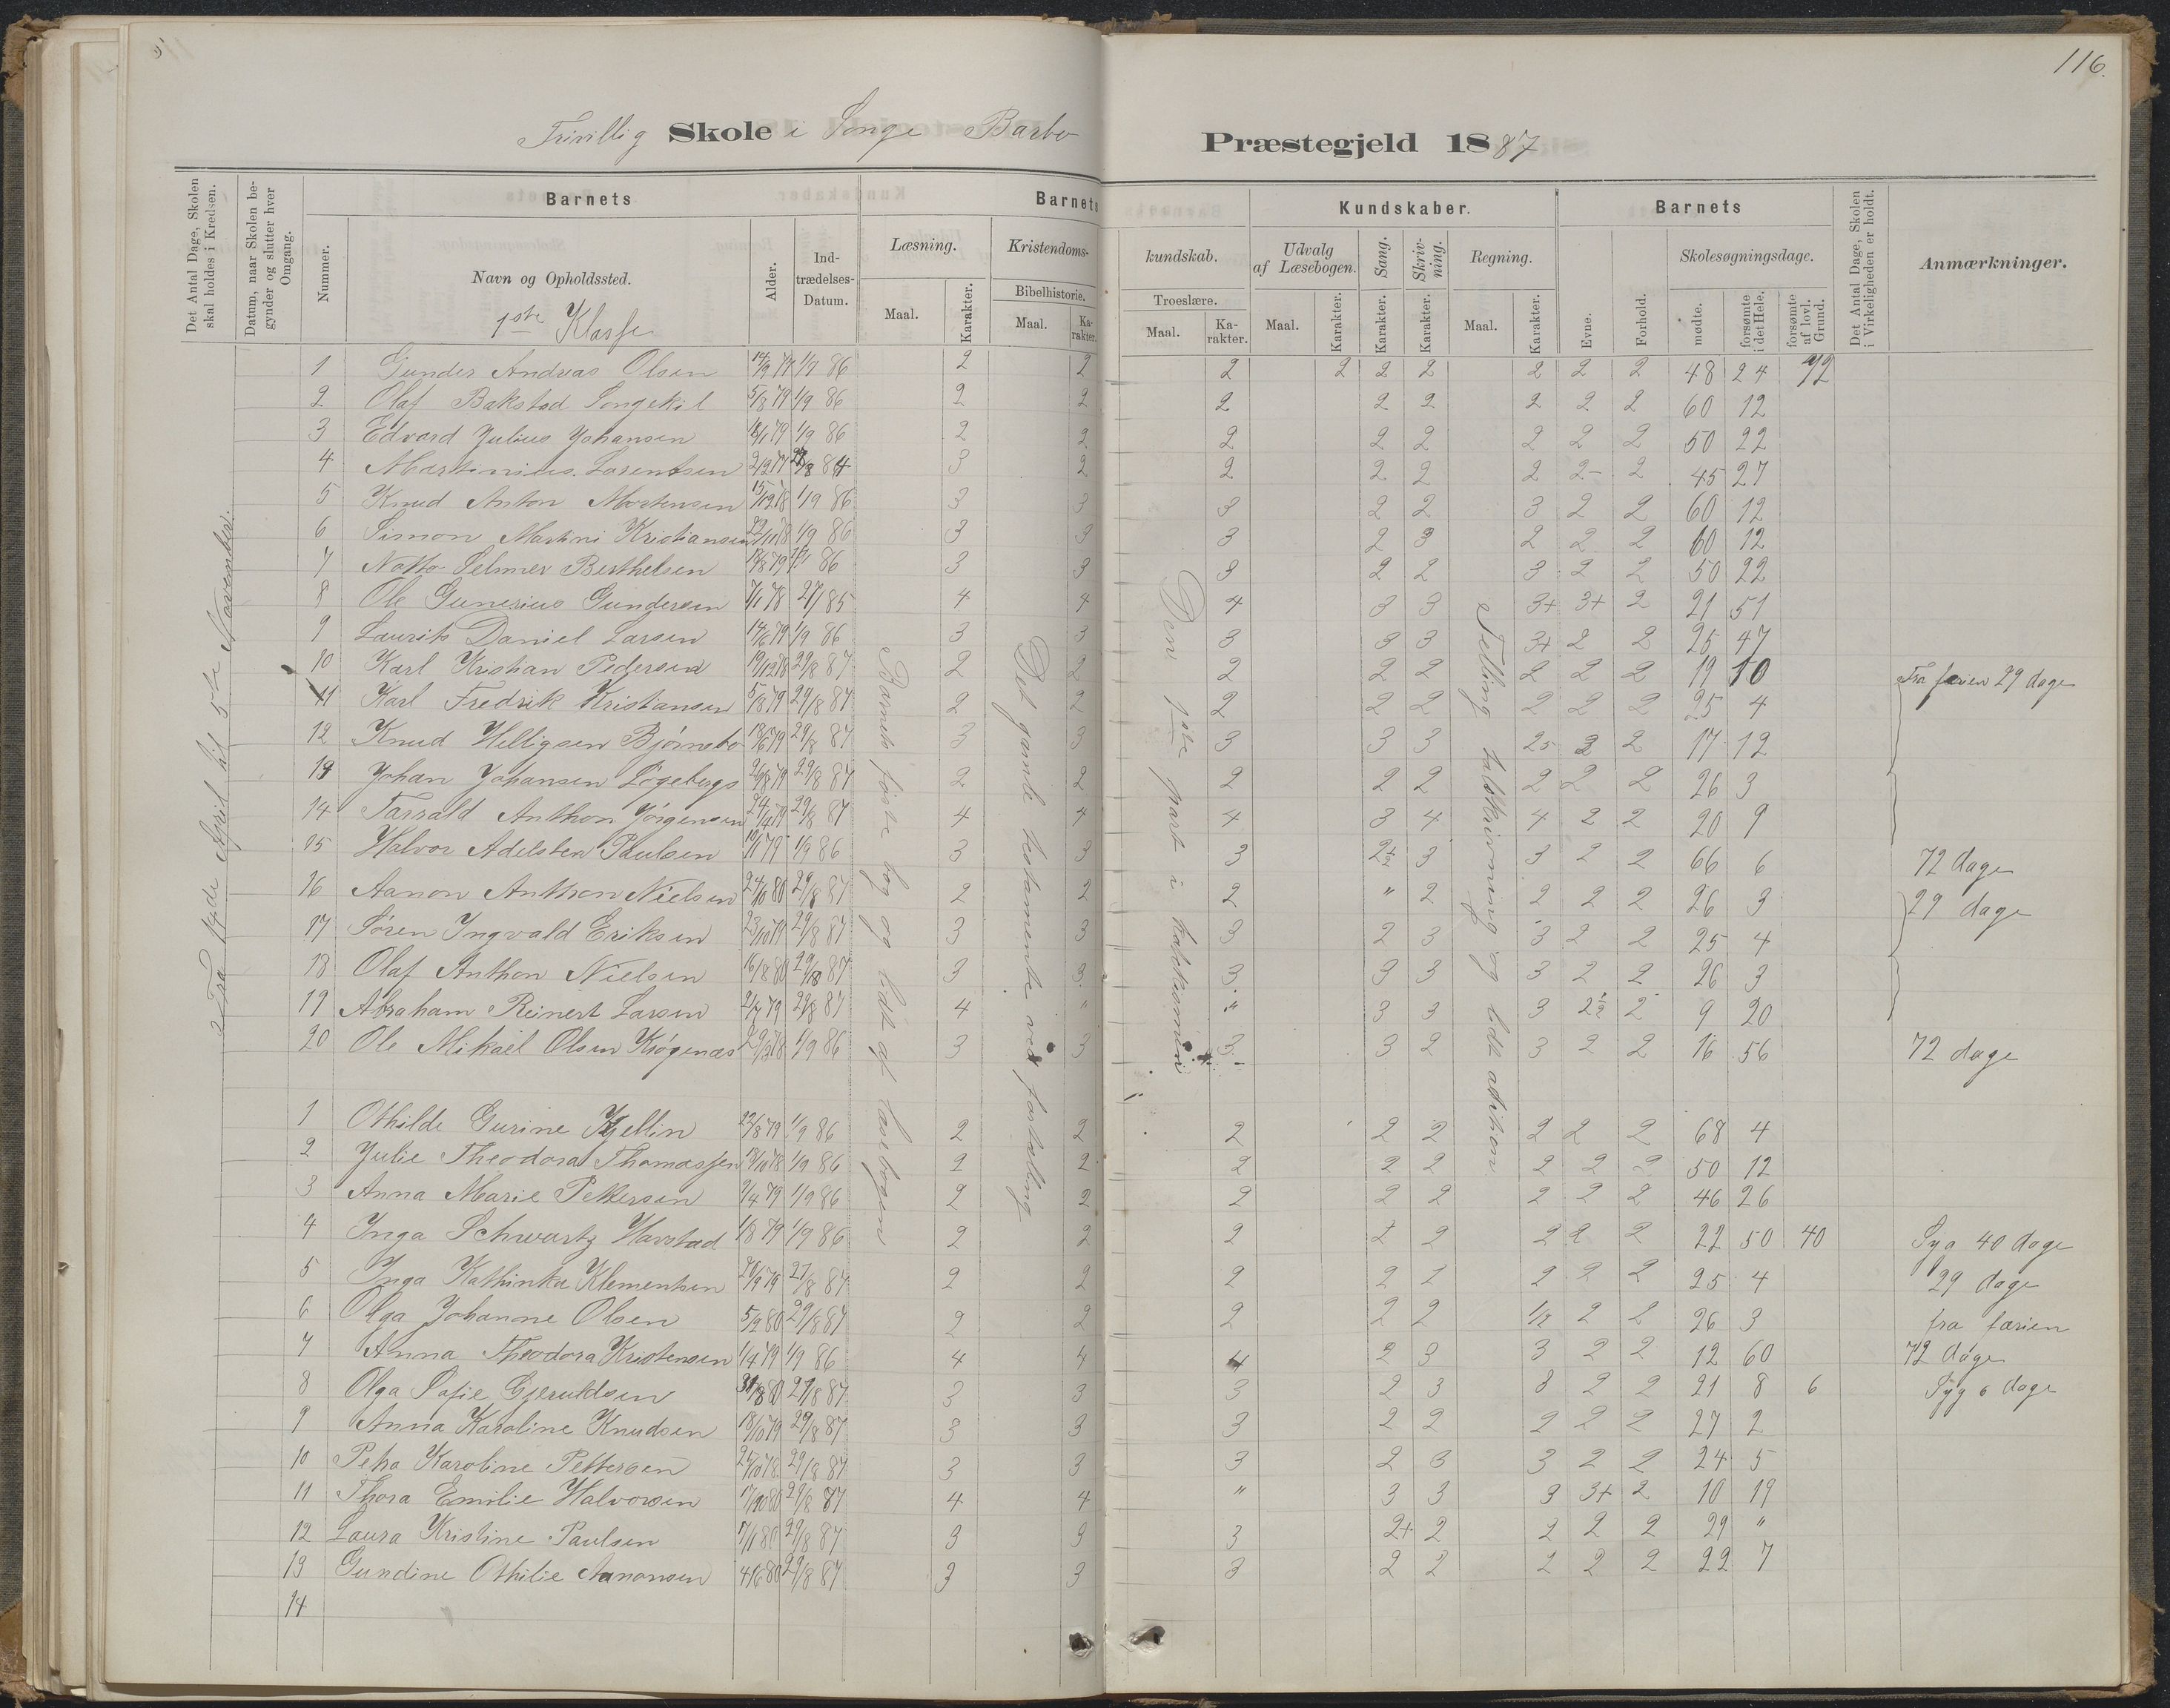 116.
Frivillig Skole i Songe Barbo Præstegjeld 1887
Det Antal Dage, Skolen skal holdes i Kredsen.
Datum, naar Skolen begynder og slutter hver Omgang.
Nummer.
Barnets
Navn og Opholdssted.
1ste Klasse
Alder.
Indtrædelses-Datum.
Barnets Kundskaber.
Læsning.
Maal.
Karakter.
Kristendomskundskab.
Bibelhistorie.
Maal.
Karakter.
Troeslære.
Maal.
Karakter.
Udvalg af Læsebogen.
Maal.
Karakter.
Sang.
Karakter.
Skrivning.
Karakter.
Regning.
Maal.
Karakter.
Barnets
Evne.
Forhold.
Skolesøgningsdage.
mødte.
forsømte i det Hele.
forsømte af lovl. Grund.
Det Antal Dage, Skolen i Virkeligheden er holdt.
Anmærkninger.
April til 5te November.
Barnets første bog og lidt af læsebogen
Det gamle testamente ved fortælling
Den 1ste part i
Telling talskrivning og lidt adition
1 Gunder Andreas Olsen 1/9 86 2 2 2 2 2 2 2 2 2 48 24 72
2 Olaf Bakstad Songekil 5/8 79 1/9 86 2 2 2 2 2 2 2 2 60 12
3 Edvard Julius Johansen 1/9 86 2 2 2 2 2 2 2 2 50 22
4 Martinius Larentsen 3 2 2 2 2 2 2- 2 45 27
5 Knud Anton Mortensen 15/12 78 1/9 86 3 3 3 2 2 3 2 2 60 12
6 Simon Martini Kristiansen 1/9 86 3 3 3 2 3 2 2 2 60 12
7 Selmer Berthelsen 86 3 3 3 2 2 3 2 2 50 22
8 Ole Gunerius Gundersen 85 4 4 4 3 3 3+ 3+ 2 21 51
9 Laurits Daniel Larsen 14/6 79 1/9 86 3 3 3 3 3 3+ 2 2 25 47
10 Karl Kristian Pedersen 19/12 78 29/8 87 2 2 2 2 2 2 2 2 19 10 Fra færien 29 dage
11 Karl Fredrik Kristansen 29/8 87 2 2 2 2 2 2 2 2 25 4
12 Knud Helligsen Bjørnebo 29/8 87 3 3 3 3 3 2 2 17 12
13 Johan Johansen 29/8 87 2 2 2 2 2 2 2 2 26 3
14 Tarrald Anthon Jørgensen 24/4 79 29/8 87 4 4 4 3 4 4 2 2 20 9
15 Halvor Adelsten Paulsen 1/9 86 3 3 3 2½ 3 3 2 2 66 6 72 dage
16 Aanon Anthon Nielsen 29/8 87 2 2 2 " 2 2 2 2 26 3 29 dage
17 Søren Ingvald Eriksen 23/10 79 29/8 87 3 3 3 2 3 3 2 2 25 4
18 Olaf Anthon Nielsen 16/8 80 29/8 87 3 3 3 3 3 3 2 2 26 3
19 Abraham Reinert Larsen 29/8 87 4 " " 3 3 3 2½ 2 9 20
20 Ole Mikael Olsen 1/9 86 3 3 3 3 2 3 2 2 16 56 72 dage
1 Othilde Gurine Kjellin 22/8 79 1/9 86 2 2 2 2 2 2 2 2 68 4
2 Julie Theodora Thomassen 1/9 86 2 2 2 2 2 2 2 2 50 12
3 Anna Marie Pettersen 1/9 86 2 2 2 2 2 2 2 2 46 26
4 Inga Schwartz Havstad 1/8 79 1/9 86 2 2 2 2 2 2 2 2 22 50 40 Syg 40 dage
5 Inga Kathinka Klementsen 87 2 2 2 2 2 2 2 2 25 4 29 dage
6 Olga Johanne Olsen 5/2 80 29/8 87 2 2 2 2 2 1/2 2 2 26 3 fra færien
7 Anna Theodora Kristensen 1/4 79 1/9 86 4 4 4 2 3 3 2 2 12 60 72 dage
8 Olga Sofie Gjeruldsen 87 3 3 3 2 3 3 2 2 21 8 6 Syg 6 dage
9 Anna Karoline Knudsen 18/10 79 29/8 87 3 3 3 2 2 2 2 2 27 2
10 Petra Karoline Pettersen 29/8 87 3 3 3 2 3 3 2 2 24 5
11 Thora Emilie Halvorsen 29/8 87 4 4 " 3 3 3 3+ 2 10 19
12 Laura Kristine Paulsen 29/8 87 3 3 3 2+ 2 2 2 2 29 "
13 Gundine Othilie Aanonsen 4/6 80 29/8 87 3 3 3 2 2 2 2 2 22 7
14